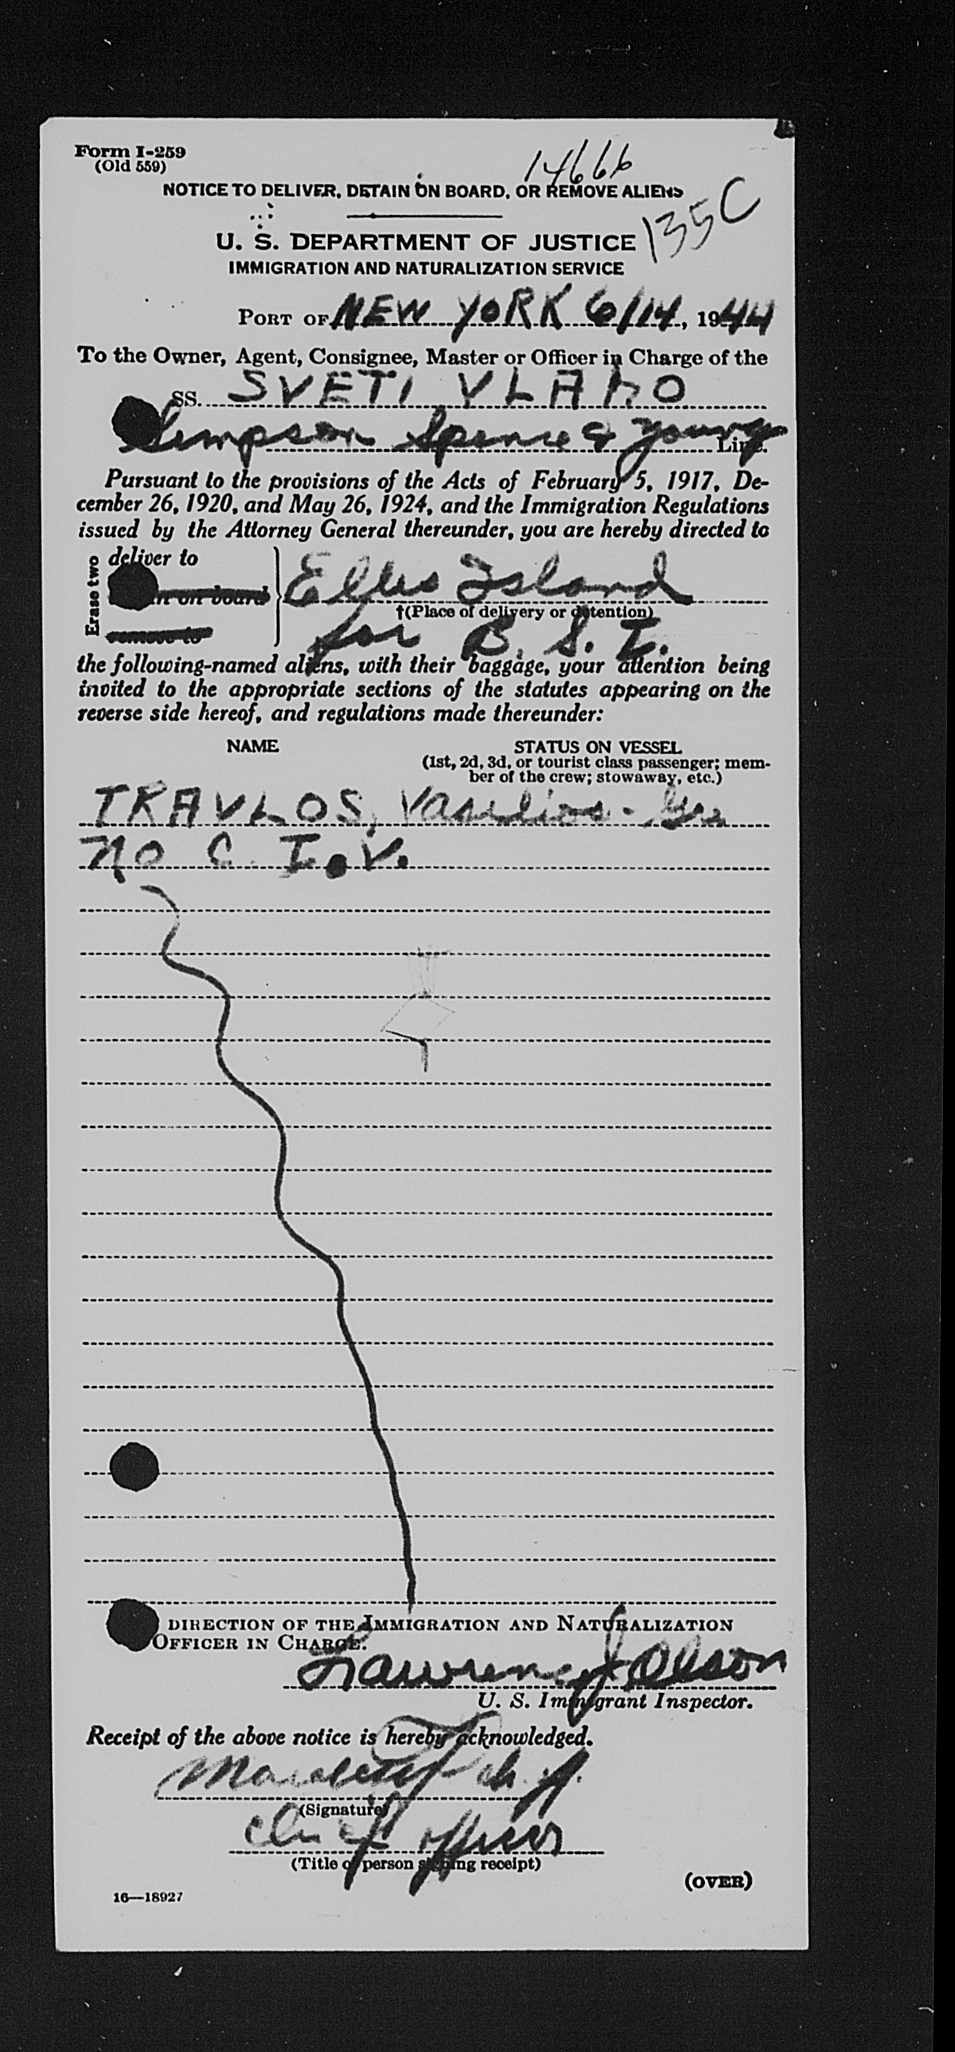 Form I-259
(Old 559)
14666
NOTICE TO DELIVER, DETAIN ON BOARD, OR REMOVE ALIENS
135C
U. S. DEPARTMENT OF JUSTICE
IMMIGRATION AND NATURALIZATION SERVICE
PORT OF NEW YORK 6/14, 1944
To the Owner, Agent, Consignee, Master or Officer in Charge of the
SS. SVETI VLAHO
Simpson Spence & Young Line.
Pursuant to the provisions of the Acts of February 5, 1917, De-
cember 26, 1920, and May 26, 1924, and the Immigration Regulations
issued by the Attorney General thereunder, you are hereby directed to
Erase two
deliver to
on board
remove to
Ellis Island
†(Place of delivery or detention)
for B. S. I.
the following-named aliens, with their baggage, your attention being
invited to the appropriate sections of the statutes appearing on the
reverse side hereof, and regulations made thereunder:
NAME STATUS ON VESSEL
(1st, 2d, 3d, or tourist class passenger; mem-
ber of the crew; stowaway, etc.)
TRAVLOS, Vasilios - Gre
NO C. I. V.
DIRECTION OF THE IMMIGRATION AND NATURALIZATION
OFFICER IN CHARGE:
Lawrence J Olson
U. S. Immigrant Inspector.
Receipt of the above notice is hereby acknowledged.
(Signature)
Chief officer
(Title of person signing receipt)
(OVER)
16—18927